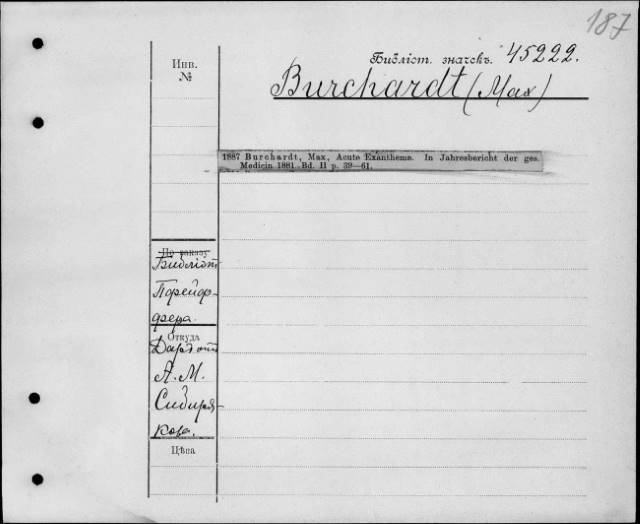 187
Бібліот. значекъ. 45222.
Инв.
№
Burchardt (Max)
1887 Burchardt, Max, Acute Exantheme. In Jahresbericht der ges.
Medicin 1881. Bd. II p. 39—61.
По заказу
Библіот
Порейф-
фера.
Откуда
Даръ отъ
А. М.
Сибиря-
кова.
Цѣна